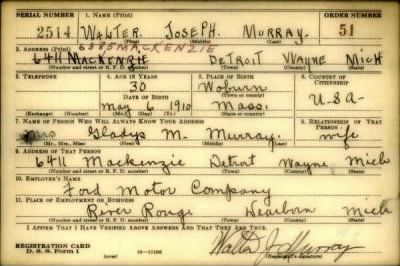 SERIAL NUMBER 1. NAME (Print) ORDER NUMBER
2514 WALTER JOSEPH MURRAY. 51
(First) (Middle) (Last)
6385 MACKENZIE
2. ADDRESS (Print)
6411 MACKENZIE DETROIT WAYNE MICH
(Number and street or R. F. D. number) (Town) (County) (State)
3. TELEPHONE 4. AGE IN YEARS 5. PLACE OF BIRTH 6. COUNTRY OF CITIZENSHIP
30 Woburn
DATE OF BIRTH (Town or county) U.S.A.
May 6, 1910 Mass.
(Exchange) (Number) (Mo.) (Day) (Yr.) (State or country)
7. NAME OF PERSON WHO WILL ALWAYS KNOW YOUR ADDRESS 8. RELATIONSHIP OF THAT PERSON
Mrs Gladys M. Murray. wife
(Mr., Mrs., Miss) (First) (Middle) (Last)
9. ADDRESS OF THAT PERSON
6411 Mackenzie Detroit Wayne Mich
(Number and street or R. F. D. number) (Town) (County) (State)
10. EMPLOYER'S NAME
Ford Motor Company
11. PLACE OF EMPLOYMENT OR BUSINESS
River Rouge Dearborn Mich
(Number and street or R. F. D. number) (Town) (County) (State)
I AFFIRM THAT I HAVE VERIFIED ABOVE ANSWERS AND THAT THEY ARE TRUE.
REGISTRATION CARD
D. S. S. Form 1 (over) Walter J. Murray
(Registrant's signature)